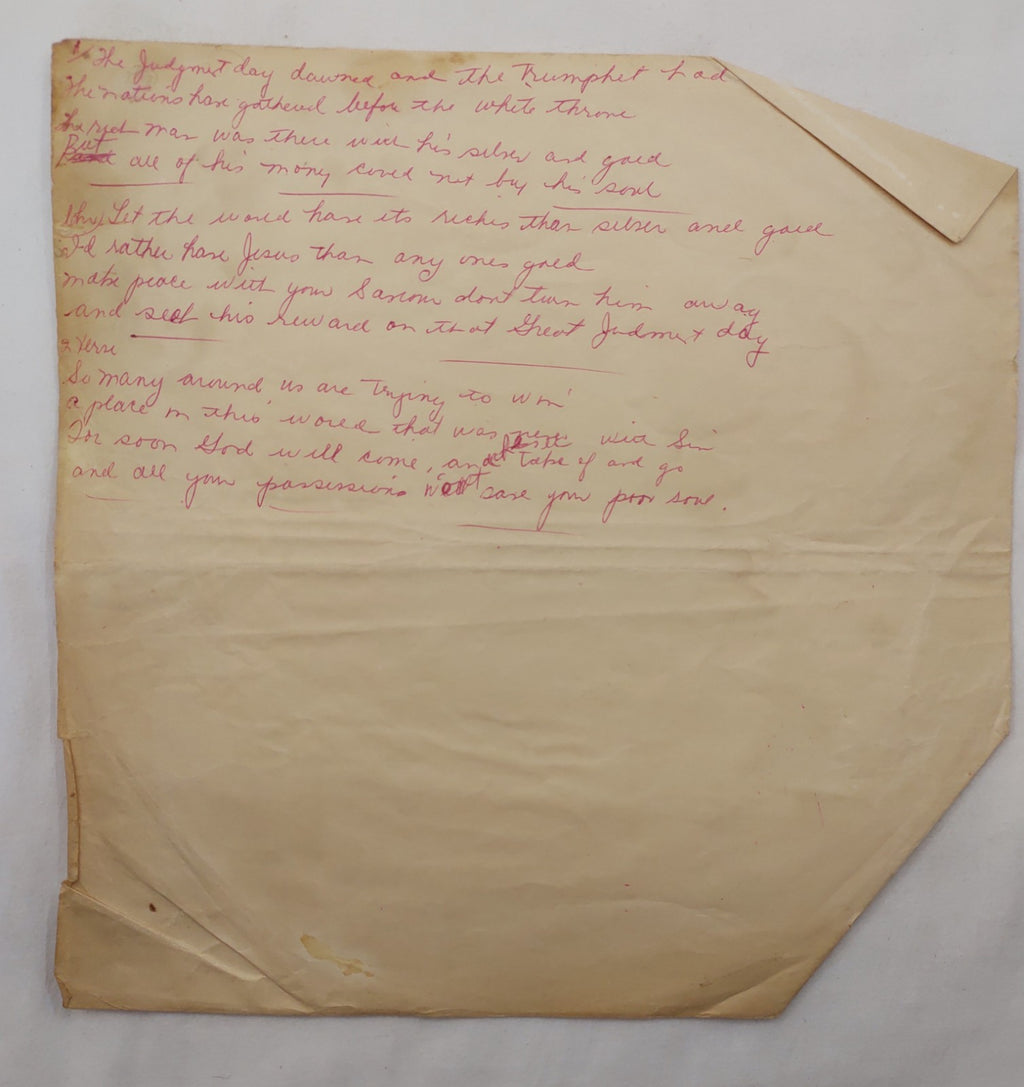 1/ The Judgmet day dawned and the Trumphet had
The nations have gathered before the white throne
The rich man was there with his silver and goed
But all of his money coved not buy his soul
Let the world have its riches than silver and goed
I'd rather have Jesus than any ones goed
make peace with your Saviour don't turn him away
and seek his reward on that Great Judmet day
2 Verse
So many around us are Trying to win
a place in this world that was with Sin
For soon God will come, and take if and go
and all your possessions won't save your poor soul.